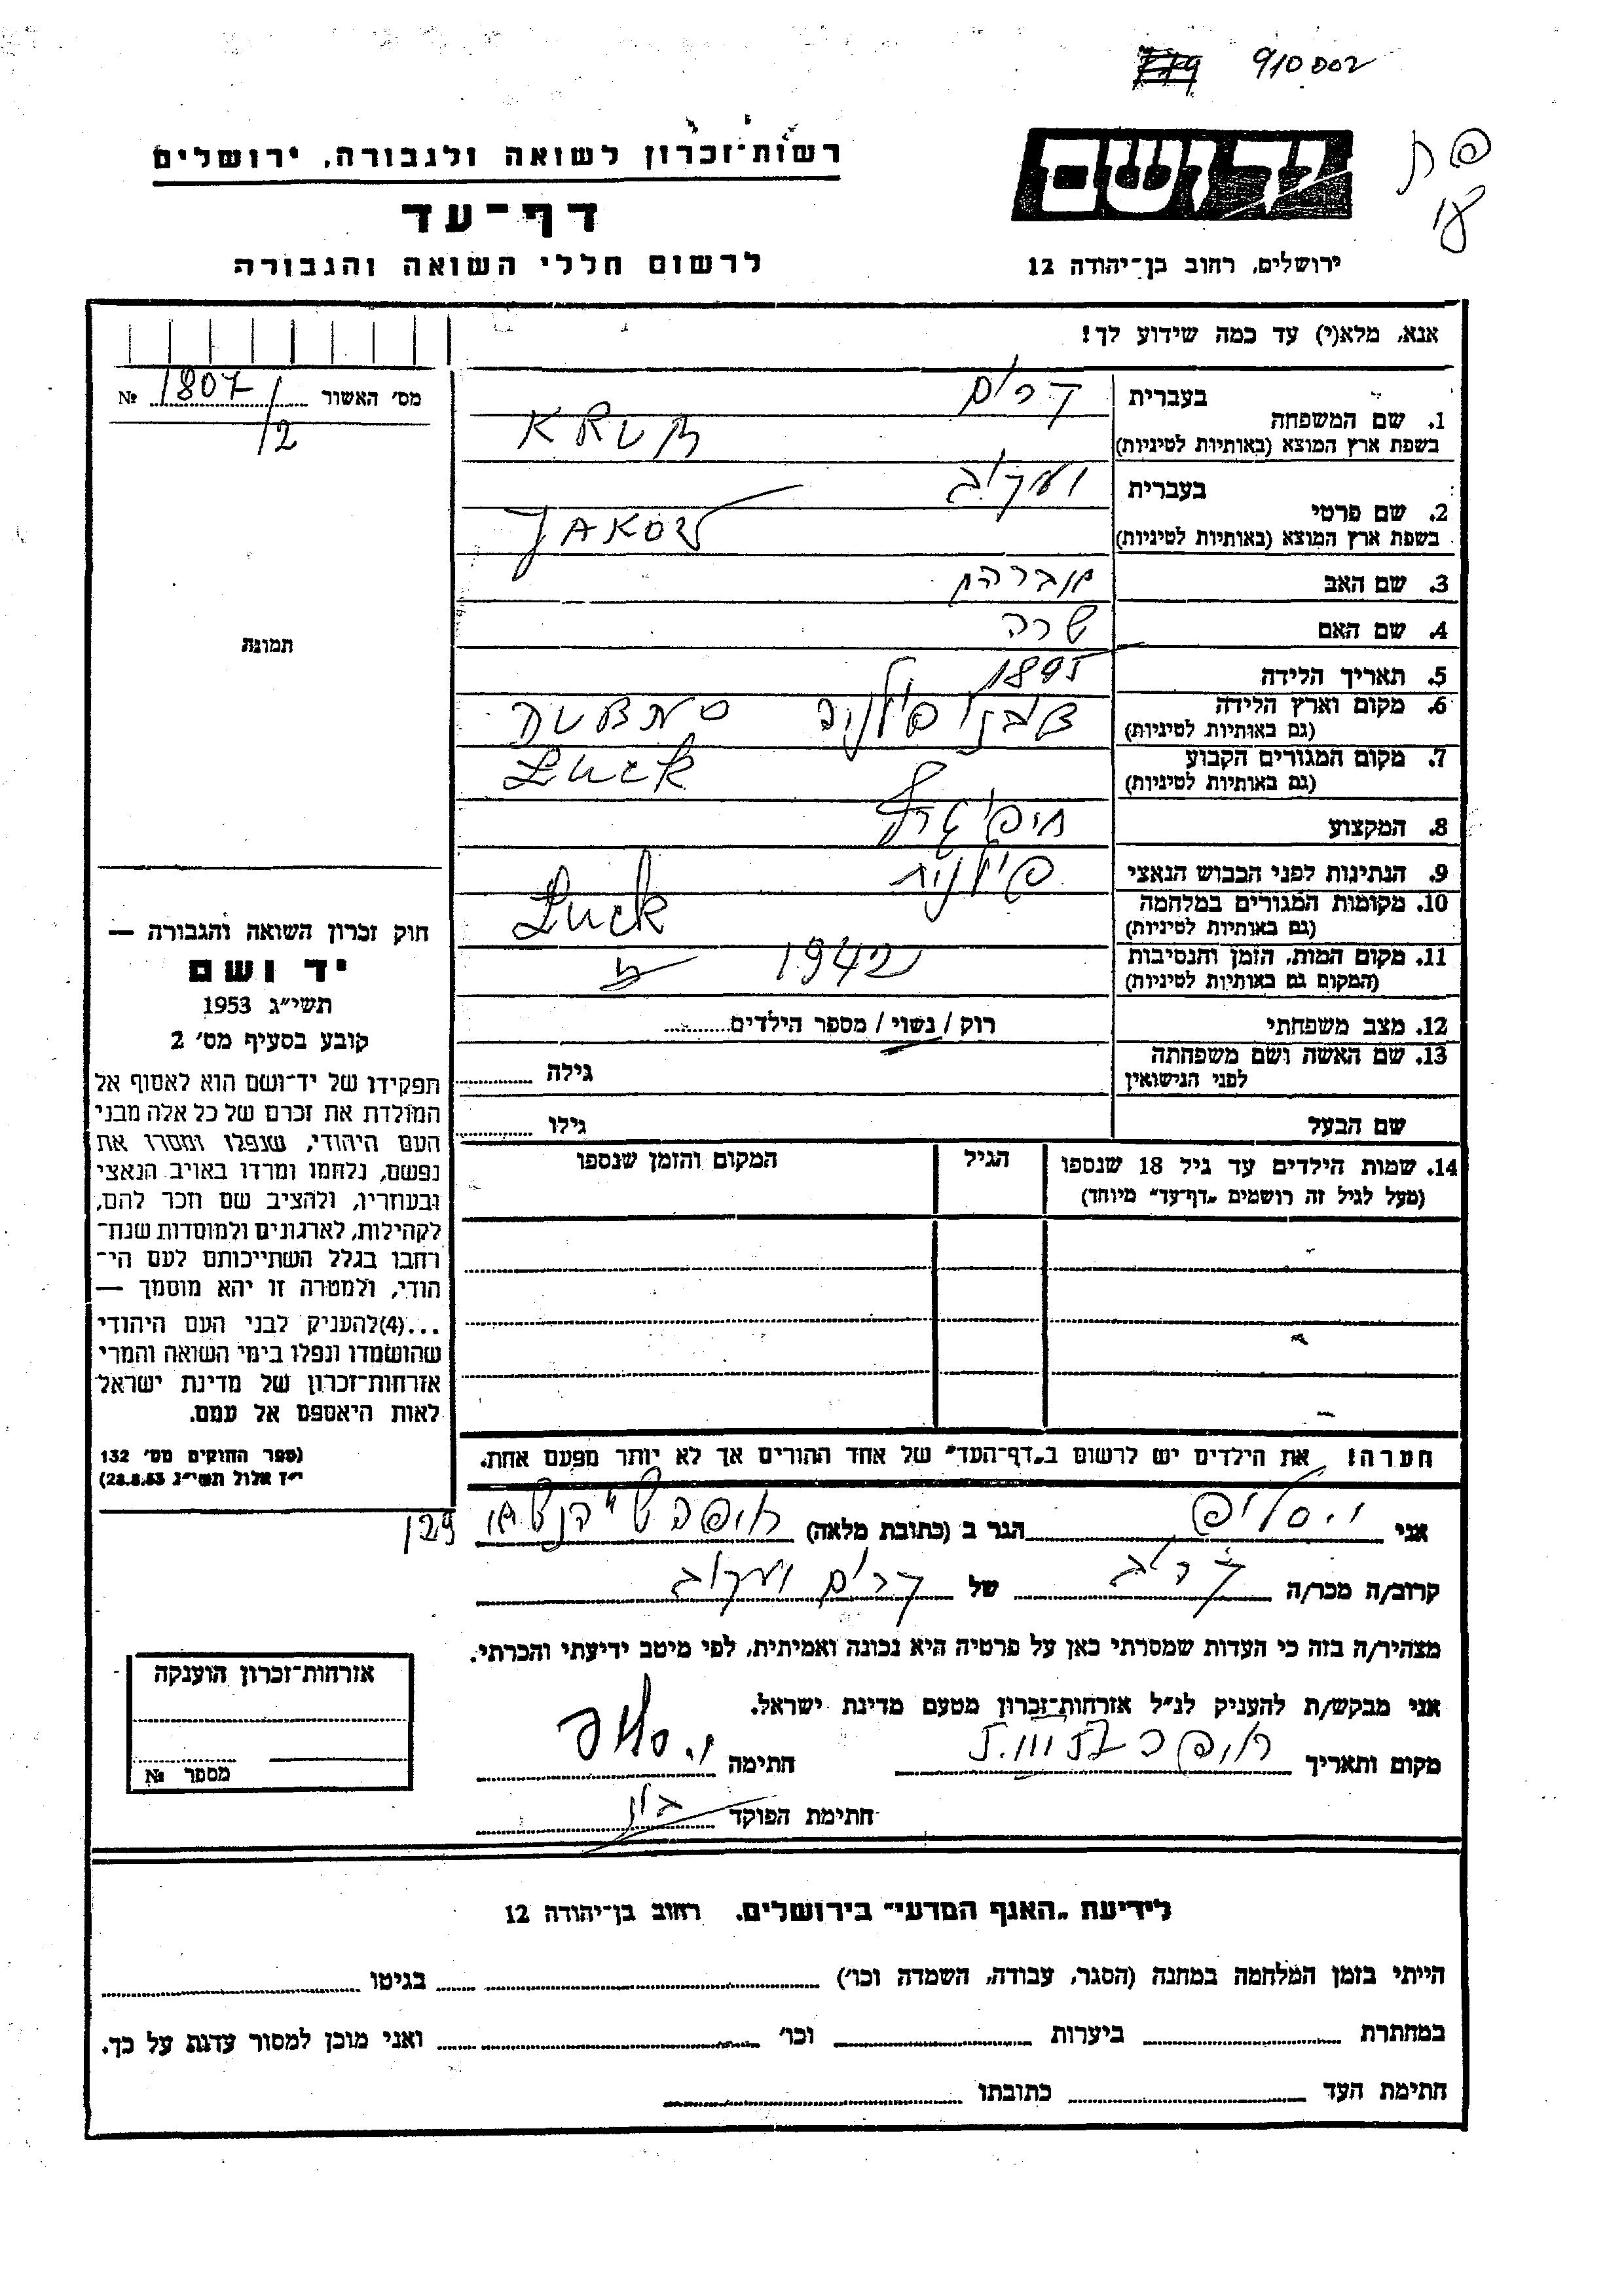 910002
פת
רשות־זכרון לשואה ולגבורה, ירושלים
יד ושם
דף־עד
לרשום חללי השואה והגבורה
ירושלים, רחוב בן־יהודה 12
אנא, מלא(י) עד כמה שידוע לך!
מס׳ האשור 1807/2 №
בעברית קרים
1. שם המשפחה
בשפת ארץ המוצא (באותיות לטיניות) KRUM
בעברית יעקוב
2. שם פרטי
בשפת ארץ המוצא (באותיות לטיניות) JAKOB
3. שם האב אברהם
4. שם האם שרה
5. תאריך הלידה 1895
6. מקום וארץ הלידה
(גם באותיות לטיניות) דובנו פולניה DUBNO
7. מקום המגורים הקבוע
(גם באותיות לטיניות) Łuck
8. המקצוע
9. הנתינות לפני הכבוש הנאצי פולנית
10. מקומות המגורים במלחמה
(גם באותיות לטיניות) Łuck
11. מקום המות, הזמן והנסיבות
(המקום גם באותיות לטיניות) 1942
12. מצב משפחתי רוק / נשוי / מספר הילדים
13. שם האשה ושם משפחתה
לפני הנישואין גילה
שם הבעל גילו
14. שמות הילדים עד גיל 18 שנספו
(מעל לגיל זה רושמים „דף־עד״ מיוחד)
הגיל
המקום והזמן שנספו
תמונה
חוק זכרון השואה והגבורה —
יד ושם
תשי״ג 1953
קובע בסעיף מס׳ 2
תפקידו של יד־ושם הוא לאסוף אל
המולדת את זכרם של כל אלה מבני
העם היהודי, שנפלו ומסרו את
נפשם, נלחמו ומרדו באויב הנאצי
ובעוזריו, ולהציב שם וזכר להם,
לקהילות, לארגונים ולמוסדות שנח־
רחבו בגלל השתייכותם לעם הי־
הודי, ולמטרה זו יהא מוסמך —
...(4)להעניק לבני העם היהודי
שהושמדו ונפלו בימי השואה והמרי
אזרחות־זכרון של מדינת ישראל
לאות היאספם אל עמם.
(ספר החוקים מס׳ 132
י״ז אלול תשי״ג 28.8.53)
הערה! את הילדים יש לרשום ב„דף־העד״ של אחד ההורים אך לא יותר מפעם אחת.
אני הגר ב (כתובת מלאה) חיפה 129
קרוב/ה מכר/ה קרוב של קרים יעקוב
מצהיר/ה בזה כי העדות שמסרתי כאן על פרטיה היא נכונה ואמיתית, לפי מיטב ידיעתי והכרתי.
אני מבקש/ת להעניק לנ״ל אזרחות־זכרון מטעם מדינת ישראל.
מקום ותאריך חיפה חתימה
חתימת הפוקד
אזרחות־זכרון הוענקה
מספר №
לידיעת „האגף המדעי״ בירושלים, רחוב בן־יהודה 12
הייתי בזמן המלחמה במחנה (הסגר, עבודה, השמדה וכו׳) בגיטו
במחתרת ביערות וכו׳ ואני מוכן למסור עדות על כך.
חתימת העד כתובתו